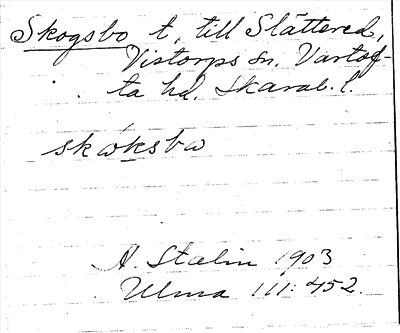 Skogsbo t. till Slättered,
Vistorps sn. Vartof-
ta hd. Skarab. l.
skωksbω
A. Stalin 1903
Ulma 111:452.